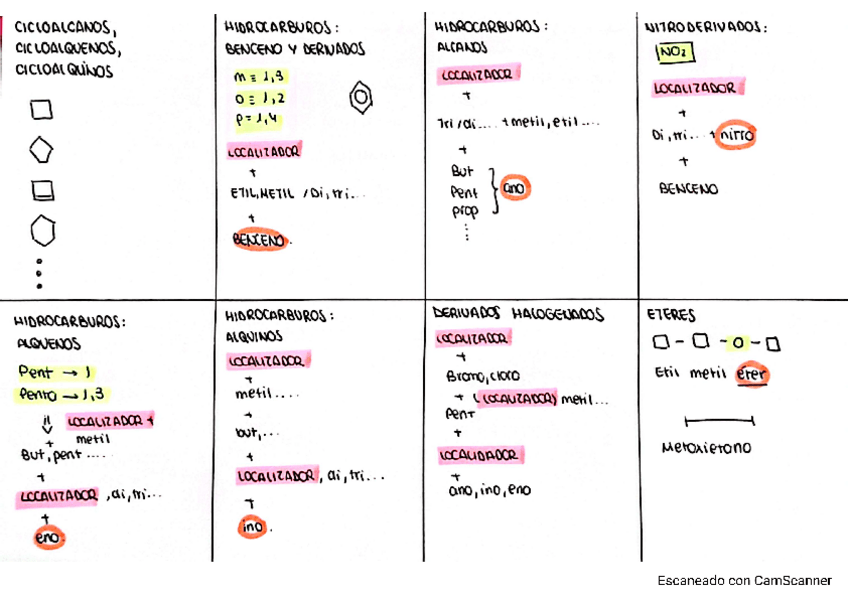 CICLOALCANOS,
CICLOALQUENOS,
CICLOALQUINOS
HIDROCARBUROS:
BENCENO Y DERIVADOS
m = 1,3
o = 1,2
p = 1,4
LOCALIZADOR
+
ETIL, METIL / Di, tri...
+
BENCENO.
HIDROCARBUROS:
ALCANOS
LOCALIZADOR
+
Tri / di .... + metil, etil ....
+
But
Pent
prop
ano
NITRODERIVADOS:
NO₂
LOCALIZADOR
+
Di, tri... + nitro
+
BENCENO
HIDROCARBUROS:
ALQUENOS
Pent → 1
Penta → 1,3
LOCALIZADOR +
+ metil
But, pent .....
+
LOCALIZADOR , di, tri...
+
eno.
HIDROCARBUROS:
ALQUINOS
LOCALIZADOR
+
metil ....
+
but, ...
+
LOCALIZADOR, di, tri...
+
ino.
DERIVADOS HALOGENADOS
LOCALIZADOR
+
Bromo, cloro
+ (LOCALIZADOR) metil...
Pent
+
LOCALIDADOR
+
ano, ino, eno
ETERES
□ - □ - O - □
Etil metil éter
Metoxietano
Escaneado con CamScanner